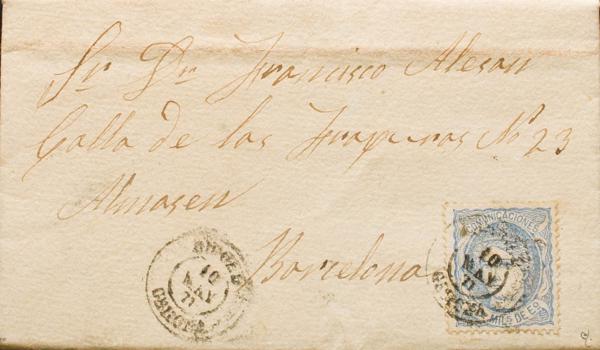 Sr. Dn. Francisco Alesan
Calla de las Frapuras Nº 23
Almasen
Barcelona
COMUNICACIONES
MILS DE E
10
MAY
71
10
MAY
71